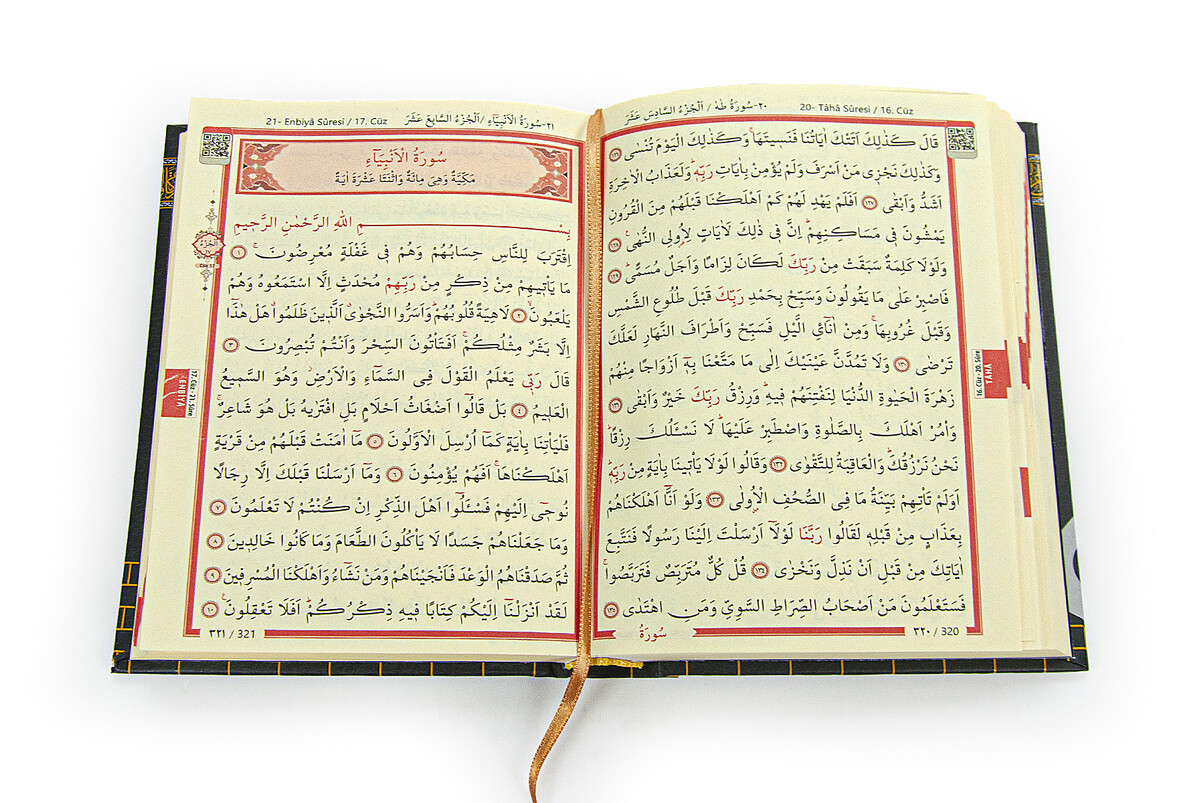 ٢٠-سُورَةُ طٰهٰ / اَلْجُزْءُ السَّادِسَ عَشَرَ 20- Tâhâ Sûresi / 16. Cüz
قَالَ كَذٰلِكَ اَتَتْكَ اٰيَاتُنَا فَنَسٖيتَهَاۚ وَكَذٰلِكَ الْيَوْمَ تُنْسٰى ﴿١٢٦﴾
وَكَذٰلِكَ نَجْزٖى مَنْ اَسْرَفَ وَلَمْ يُؤْمِنْ بِاٰيَاتِ رَبِّهٖؕ وَلَعَذَابُ الْاٰخِرَةِ
اَشَدُّ وَاَبْقٰى ﴿١٢٧﴾ اَفَلَمْ يَهْدِ لَهُمْ كَمْ اَهْلَكْنَا قَبْلَهُمْ مِنَ الْقُرُونِ
يَمْشُونَ فٖى مَسَاكِنِهِمْؕ اِنَّ فٖى ذٰلِكَ لَاٰيَاتٍ لِاُولِى النُّهٰىۚ ﴿١٢٨﴾
وَلَوْلَا كَلِمَةٌ سَبَقَتْ مِنْ رَبِّكَ لَكَانَ لِزَامًا وَاَجَلٌ مُسَمًّىؕ ﴿١٢٩﴾
فَاصْبِرْ عَلٰى مَا يَقُولُونَ وَسَبِّحْ بِحَمْدِ رَبِّكَ قَبْلَ طُلُوعِ الشَّمْسِ
وَقَبْلَ غُرُوبِهَاۚ وَمِنْ اٰنَٓائِ الَّيْلِ فَسَبِّحْ وَاَطْرَافَ النَّهَارِ لَعَلَّكَ
تَرْضٰى ﴿١٣٠﴾ وَلَا تَمُدَّنَّ عَيْنَيْكَ اِلٰى مَا مَتَّعْنَا بِهٖٓ اَزْوَاجًا مِنْهُمْ
زَهْرَةَ الْحَيٰوةِ الدُّنْيَا لِنَفْتِنَهُمْ فٖيهِؕ وَرِزْقُ رَبِّكَ خَيْرٌ وَاَبْقٰى ﴿١٣١﴾
وَاْمُرْ اَهْلَكَ بِالصَّلٰوةِ وَاصْطَبِرْ عَلَيْهَاؕ لَا نَسْـَٔلُكَ رِزْقًاؕ
نَحْنُ نَرْزُقُكَؕ وَالْعَاقِبَةُ لِلتَّقْوٰى ﴿١٣٢﴾ وَقَالُوا لَوْلَا يَاْتٖينَا بِاٰيَةٍ مِنْ رَبِّهٖؕ
اَوَلَمْ تَاْتِهِمْ بَيِّنَةُ مَا فِى الصُّحُفِ الْاُولٰى ﴿١٣٣﴾ وَلَوْ اَنَّٓا اَهْلَكْنَاهُمْ
بِعَذَابٍ مِنْ قَبْلِهٖ لَقَالُوا رَبَّنَا لَوْلَٓا اَرْسَلْتَ اِلَيْنَا رَسُولًا فَنَتَّبِعَ
اٰيَاتِكَ مِنْ قَبْلِ اَنْ نَذِلَّ وَنَخْزٰى ﴿١٣٤﴾ قُلْ كُلٌّ مُتَرَبِّصٌ فَتَرَبَّصُواۚ
فَسَتَعْلَمُونَ مَنْ اَصْحَابُ الصِّرَاطِ السَّوِيِّ وَمَنِ اهْتَدٰى ﴿١٣٥﴾
سُورَةُ
٣٢٠ / 320
16. Cüz - 20. Sûre
TÂHÂ
٢١-سُورَةُ الْاَنْبِيَٓاءِ / اَلْجُزْءُ السَّابِعَ عَشَرَ 21- Enbiyâ Sûresi / 17. Cüz
سُورَةُ الْاَنْبِيَٓاءِ
مَكِّيَّةٌ وَهِىَ مِائَةٌ وَاثْنَتَا عَشْرَةَ اٰيَةً
بِسْمِ اللّٰهِ الرَّحْمٰنِ الرَّحٖيمِ
اِقْتَرَبَ لِلنَّاسِ حِسَابُهُمْ وَهُمْ فٖى غَفْلَةٍ مُعْرِضُونَۚ ﴿١﴾
مَا يَاْتٖيهِمْ مِنْ ذِكْرٍ مِنْ رَبِّهِمْ مُحْدَثٍ اِلَّا اسْتَمَعُوهُ وَهُمْ
يَلْعَبُونَۙ ﴿٢﴾ لَاهِيَةً قُلُوبُهُمْؕ وَاَسَرُّوا النَّجْوٰىۗ اَلَّذٖينَ ظَلَمُواۗ هَلْ هٰذَٓا
اِلَّا بَشَرٌ مِثْلُكُمْۚ اَفَتَاْتُونَ السِّحْرَ وَاَنْتُمْ تُبْصِرُونَ ﴿٣﴾
قَالَ رَبّٖى يَعْلَمُ الْقَوْلَ فِى السَّمَٓاءِ وَالْاَرْضِؗ وَهُوَ السَّمٖيعُ
الْعَلٖيمُ ﴿٤﴾ بَلْ قَالُٓوا اَضْغَاثُ اَحْلَامٍ بَلِ افْتَرٰيهُ بَلْ هُوَ شَاعِرٌۚ
فَلْيَاْتِنَا بِاٰيَةٍ كَمَٓا اُرْسِلَ الْاَوَّلُونَ ﴿٥﴾ مَٓا اٰمَنَتْ قَبْلَهُمْ مِنْ قَرْيَةٍ
اَهْلَكْنَاهَاۚ اَفَهُمْ يُؤْمِنُونَ ﴿٦﴾ وَمَٓا اَرْسَلْنَا قَبْلَكَ اِلَّا رِجَالًا
نُوحٖٓى اِلَيْهِمْ فَسْـَٔلُٓوا اَهْلَ الذِّكْرِ اِنْ كُنْتُمْ لَا تَعْلَمُونَ ﴿٧﴾
وَمَا جَعَلْنَاهُمْ جَسَدًا لَا يَاْكُلُونَ الطَّعَامَ وَمَا كَانُوا خَالِدٖينَ ﴿٨﴾
ثُمَّ صَدَقْنَاهُمُ الْوَعْدَ فَاَنْجَيْنَاهُمْ وَمَنْ نَشَٓاءُ وَاَهْلَكْنَا الْمُسْرِفٖينَ ﴿٩﴾
لَقَدْ اَنْزَلْنَٓا اِلَيْكُمْ كِتَابًا فٖيهِ ذِكْرُكُمْؕ اَفَلَا تَعْقِلُونَ۟ ﴿١٠﴾
٣٢١ / 321
اَلْجُزْءُ
١٧
Cüz 17
17. Cüz - 21. Sûre
ENBİYÂ